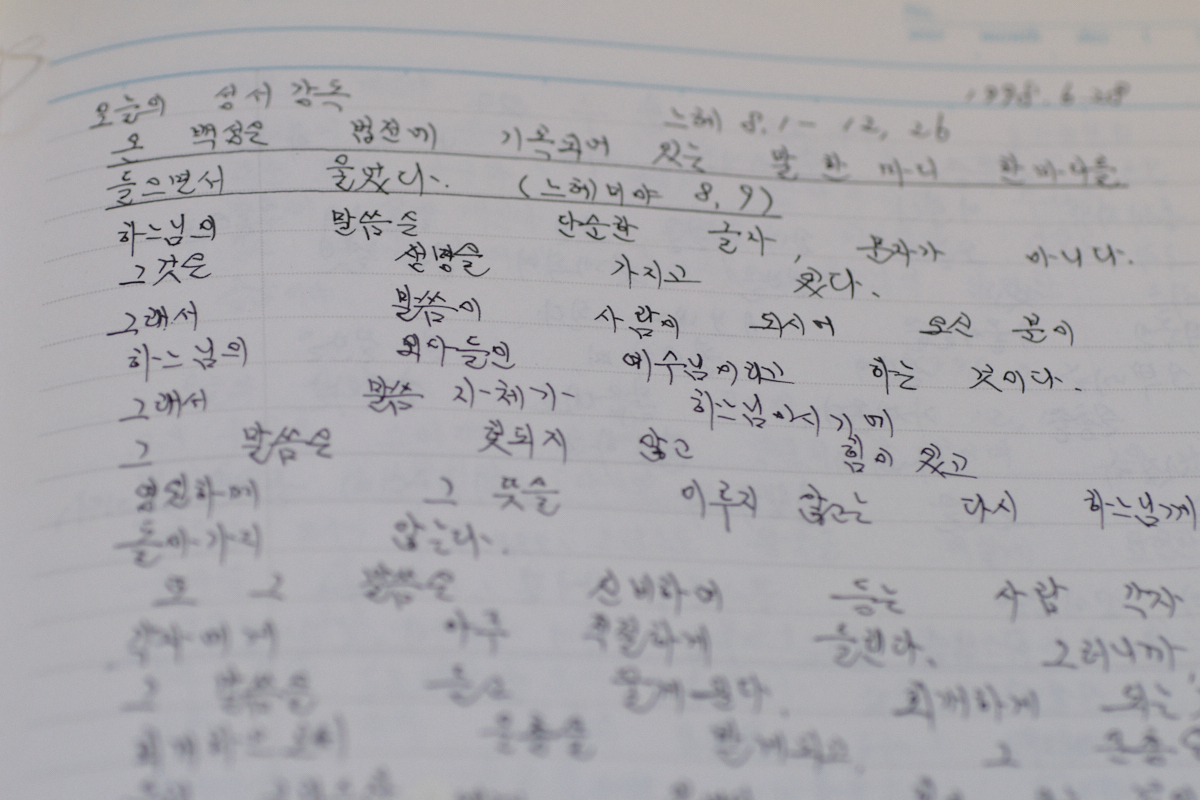 1998.6.28
오늘의 성서 감독 느헤 8.1- 12, 26
온 백성은 법전에 기록되어 있는 말 한 마디 한마디를
들으면서 울었다. (느헤미야 8, 9)
하느님의 말씀은 단순한 글자, 문자가 아니다.
그것은 생명을 가지고 있다.
그래서 말씀이 사람이 되시어 오신 분이
하느님의 외아들인 예수님이라고 하는 것이다.
그래서 말씀 자체가 하느님이시기에
그 말씀은 헛되지 않고 힘이 있고
영원하며 그 뜻을 이루지 않고는 다시 하느님께
돌아가지 않는다.
또 그 말씀은 신비하여 듣는 사람 각자
각자에게 아주 적절하게 들린다. 그러니까
그 말씀을 듣고 울게 된다. 회개하게 되는
회개하는 은총을 받게되고 그 은총